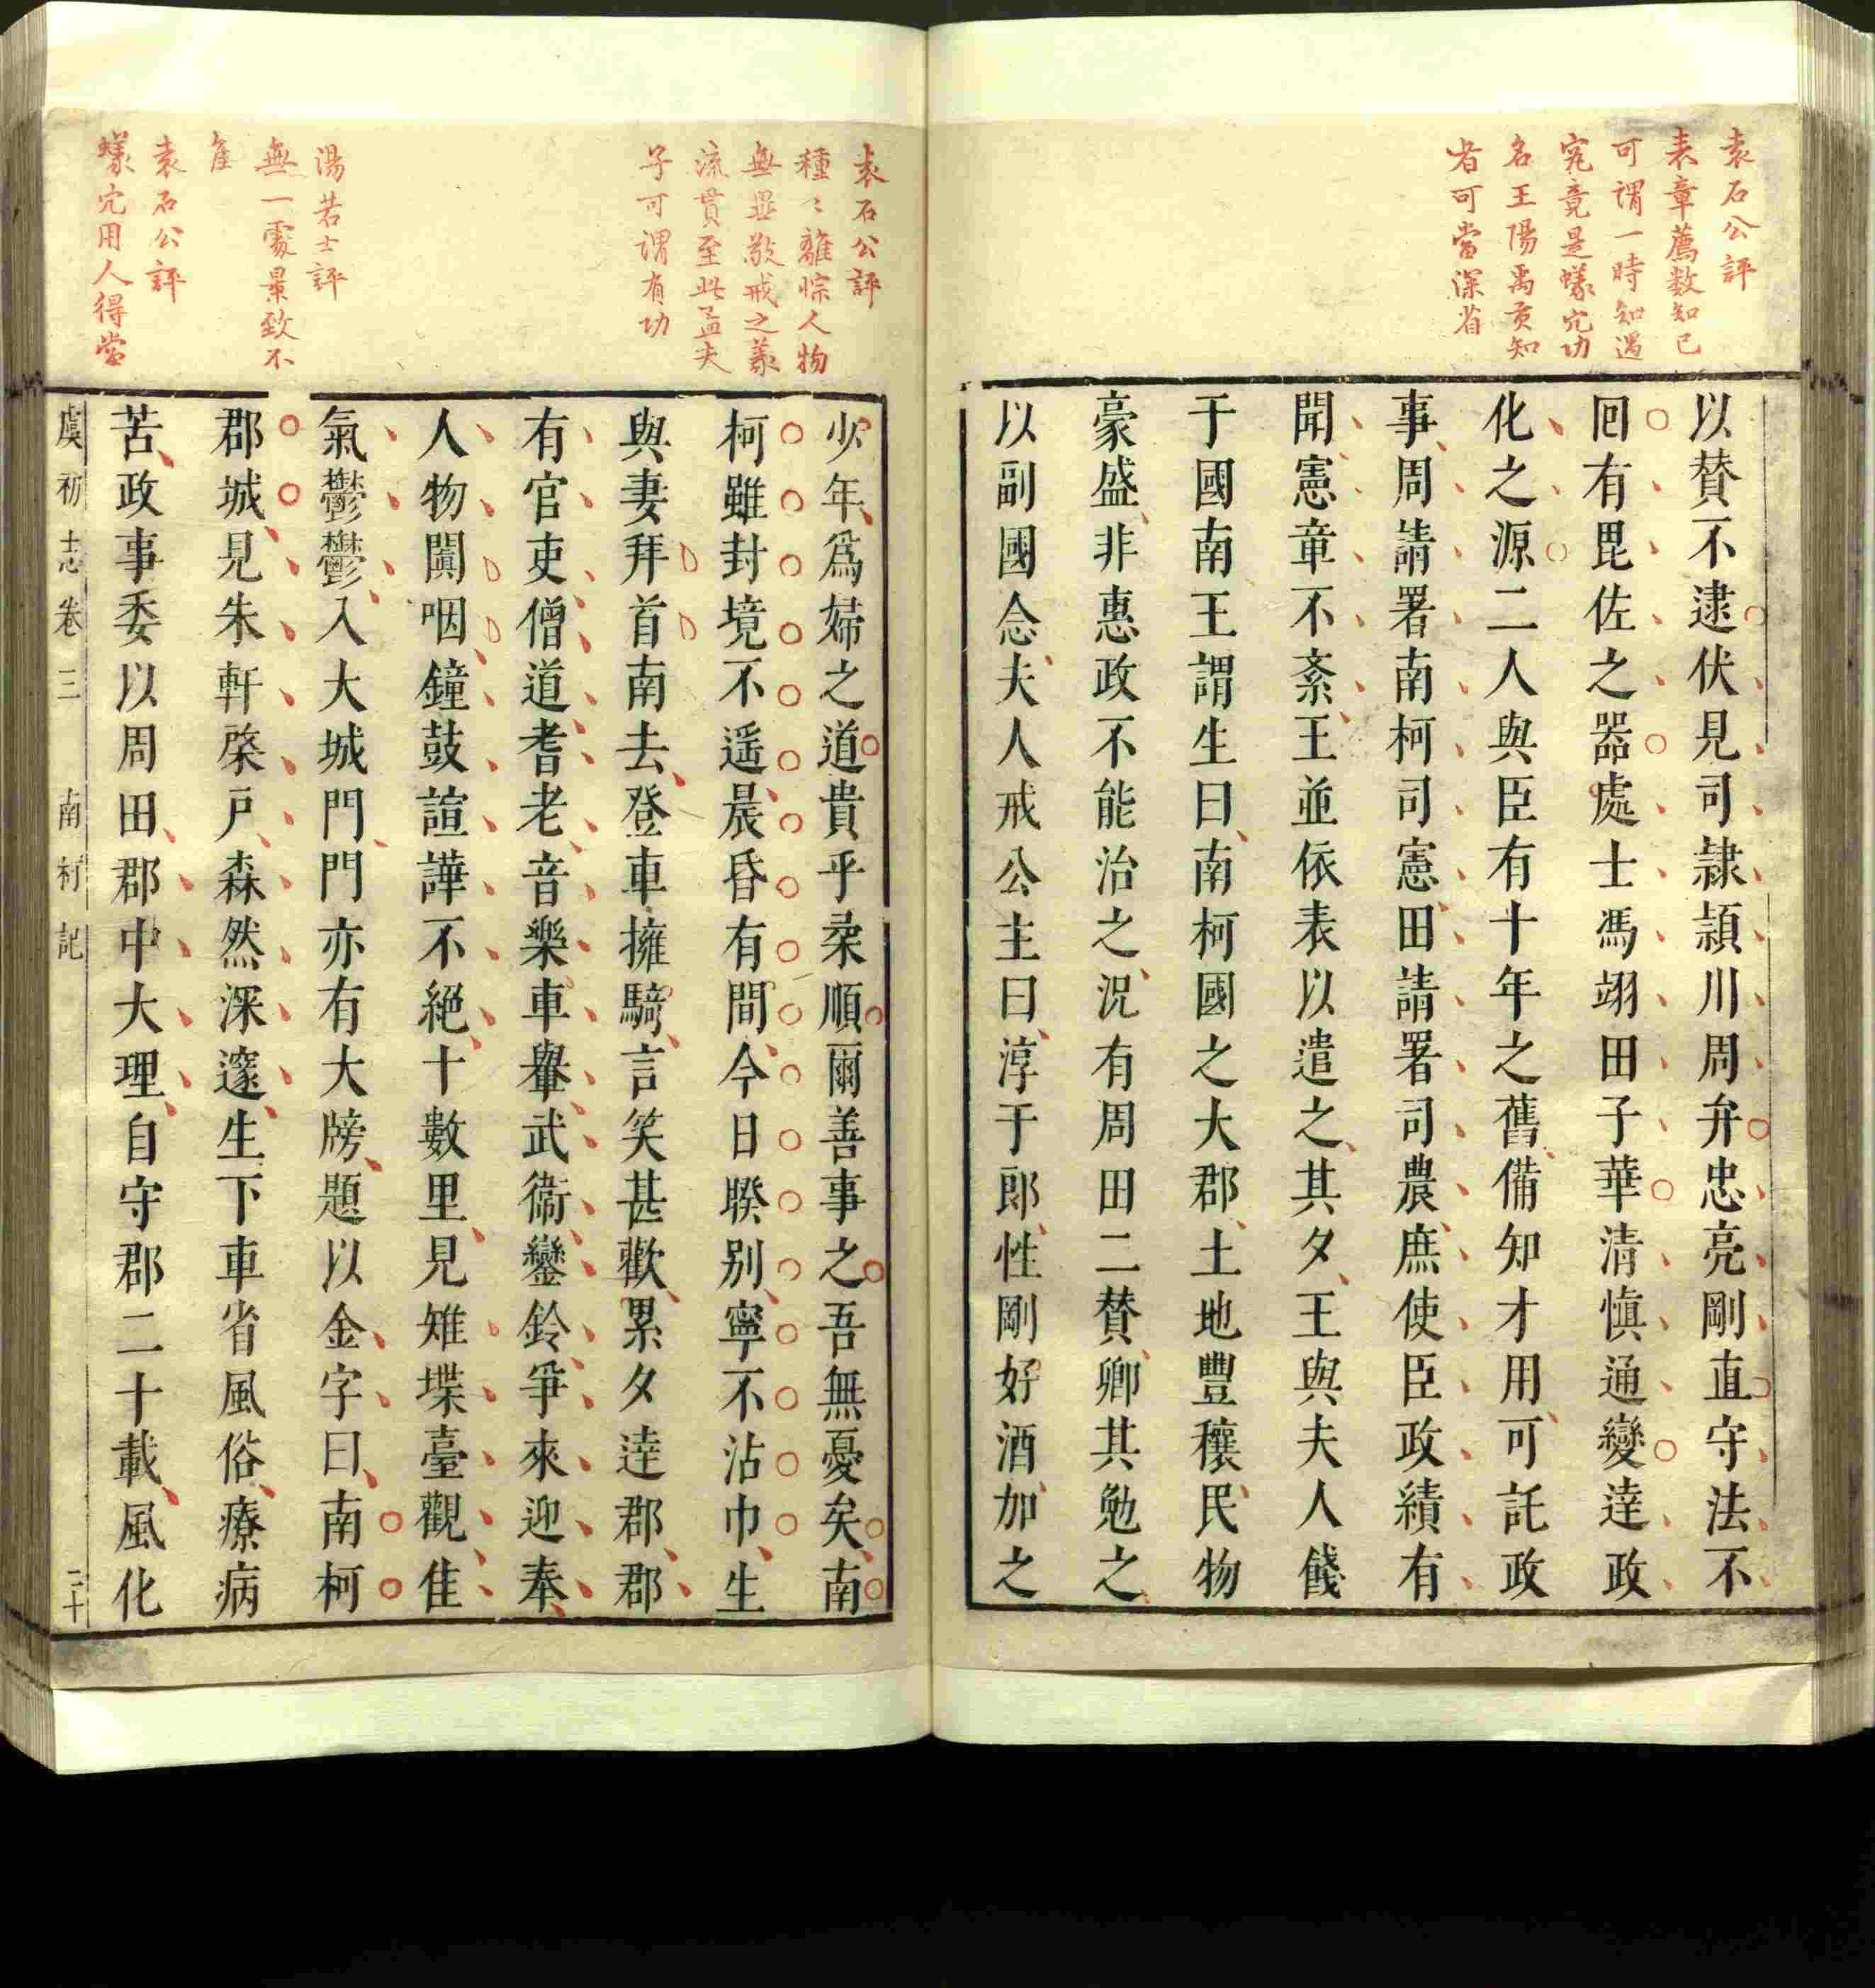 袁石公評
表章薦数知己
可謂一時知遇
究竟是蟻穴功
名王陽禹貢知
者可當深省
以賛不逮伏見司隷潁川周弁忠亮剛直守法不
回有毘佐之器處士馮翊田子華清慎通變達政
化之源二人與臣有十年之舊備知才用可託政
事周請署南柯司憲田請署司農庶使臣政績有
聞憲章不紊王並依表以遣之其夕王與夫人餞
于國南王謂生曰南柯國之大郡土地豐穰民物
豪盛非惠政不能治之況有周田二賛卿其勉之
以副國念夫人戒公主曰淳于郎性剛好酒加之
袁石公評
種〻離悰人物
無異敬戒之義
流貫至此孟夫
子可謂有功
湯若士評
無一處景致不
隹
袁石公評
蟻穴用人得當
少年爲婦之道貴乎柔順爾善事之吾無憂矣南
柯雖封境不遥晨昏有間今日暌别寧不沾巾生
與妻拜首南去登車擁騎言笑甚歡累夕達郡郡
有官吏僧道耆老音樂車轝武衞鑾鈴爭來迎奉
人物闐咽鐘鼓諠譁不絕十數里見雉堞臺觀佳
氣鬱鬱入大城門門亦有大牓題以金字曰南柯
郡城見朱軒棨戸森然深邃生下車省風俗療病
苦政事委以周田郡中大理自守郡二十載風化
虞初志卷三 南柯記 二十